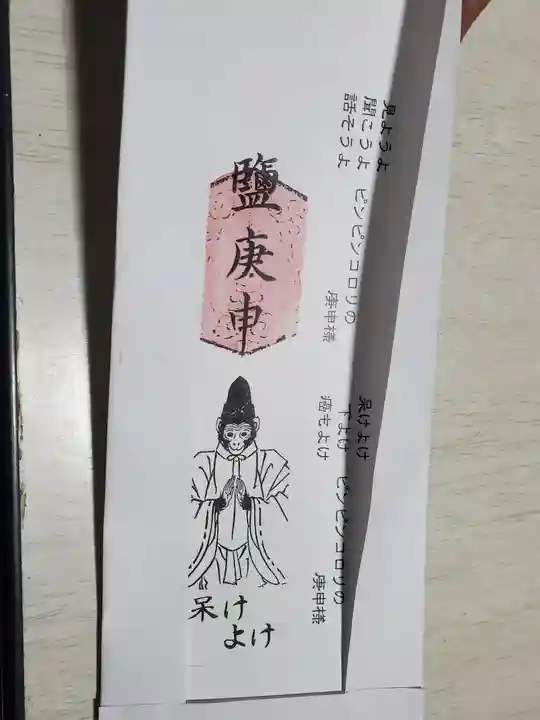 見ようよ
聞こうよ
話そうよ
ピンピンコロリの
庚申様
呆けよけ
下よけ
癌もよけ
ピンピンコロリの
庚申様
鹽庚申
呆け
よけ